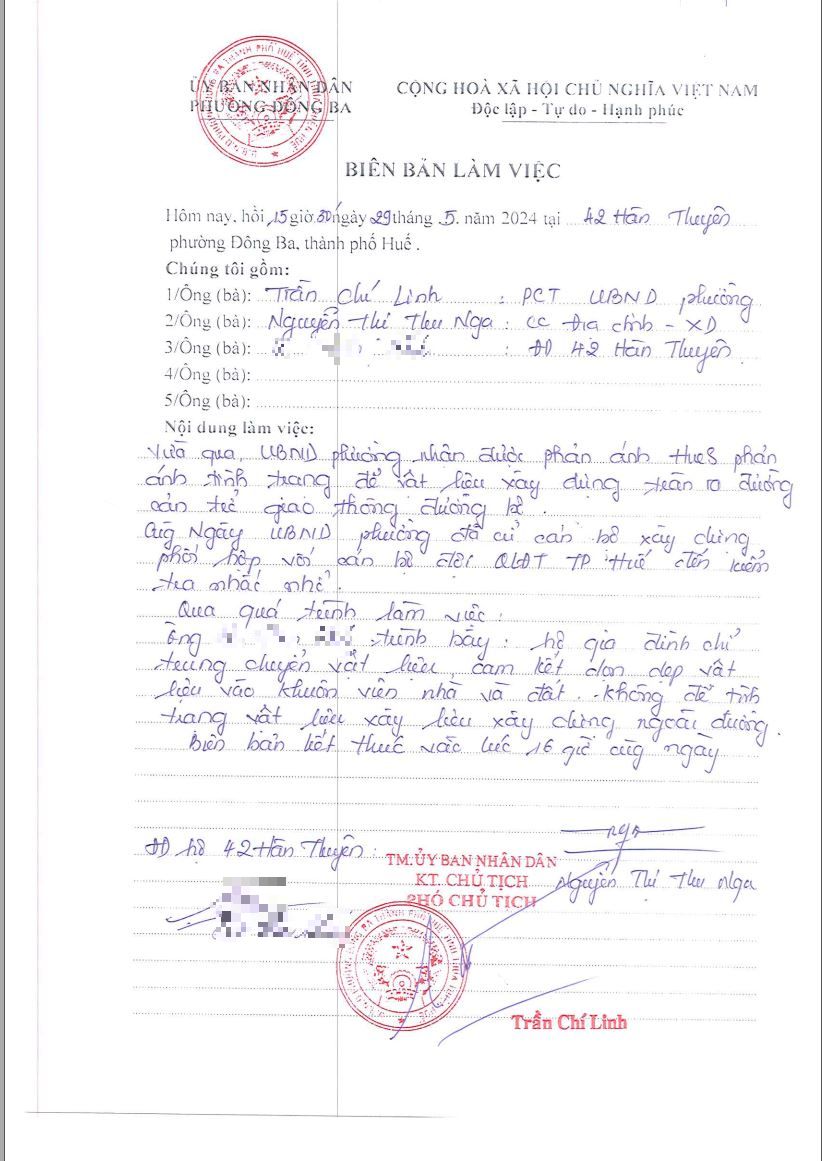 ỦY BAN NHÂN DÂN
PHƯỜNG ĐÔNG BA
CỘNG HOÀ XÃ HỘI CHỦ NGHĨA VIỆT NAM
Độc lập - Tự do - Hạnh phúc
BIÊN BẢN LÀM VIỆC
Hôm nay, hồi 15 giờ 30 ngày 29 tháng 5. năm 2024 tại 42 Hàn Thuyên
phường Đông Ba, thành phố Huế .
Chúng tôi gồm:
1/Ông (bà): Trần Chí Linh : PCT UBND phường
2/Ông (bà): Nguyễn Thị Thu Nga : CC Địa chính - XD
3/Ông (bà): : ĐD 42 Hàn Thuyên
4/Ông (bà):
5/Ông (bà):
Nội dung làm việc:
Vừa qua, UBND phường nhận được phản ánh HueS phản
ánh tình trạng để vật liệu xây dựng tràn ra đường
cản trở giao thông đường bộ.
Cùng Ngày UBND phường đã cử cán bộ xây dựng
phối hợp với cán bộ đội QLĐT TP Huế đến kiểm
tra nhắc nhở.
Qua quá trình làm việc :
Ông trình bày : hộ gia đình chỉ
trung chuyển vật liệu, cam kết dọn dẹp vật
liệu vào khuôn viên nhà và đất. không để tình
trạng vật liệu xây liệu xây dựng ngoài đường.
Biên bản kết thúc vào lúc 16 giờ cùng ngày
ĐD hộ 42 Hàn Thuyên :
TM. ỦY BAN NHÂN DÂN
KT. CHỦ TỊCH
PHÓ CHỦ TỊCH
Nga
Nguyễn Thị Thu Nga
Trần Chí Linh